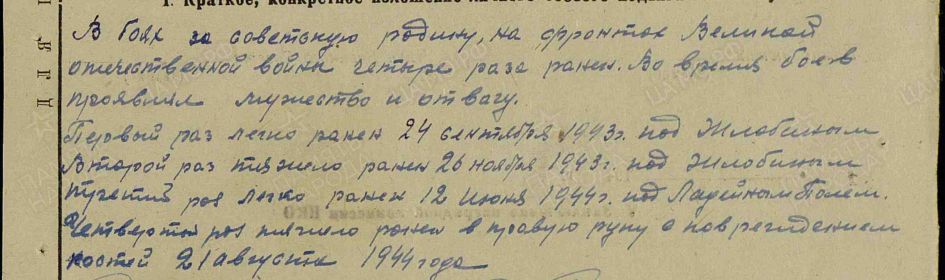 1. Краткое, конкретное изложение личного боевого подвига
В боях за советскую родину, на фронтах Великой
отечественной войны четыре раза ранен. Во время боев
проявлял мужество и отвагу.
Первый раз легко ранен 24 сентября 1943г. под Жлобиным
Второй раз тяжело ранен 26 ноября 1943г. под Жлобиным
третий раз легко ранен 12 июня 1944г. под Ладейным Полем.
Четвертый раз тяжело ранен в правую руку с повреждением
костей 21 августа 1944 года
Д Л Я